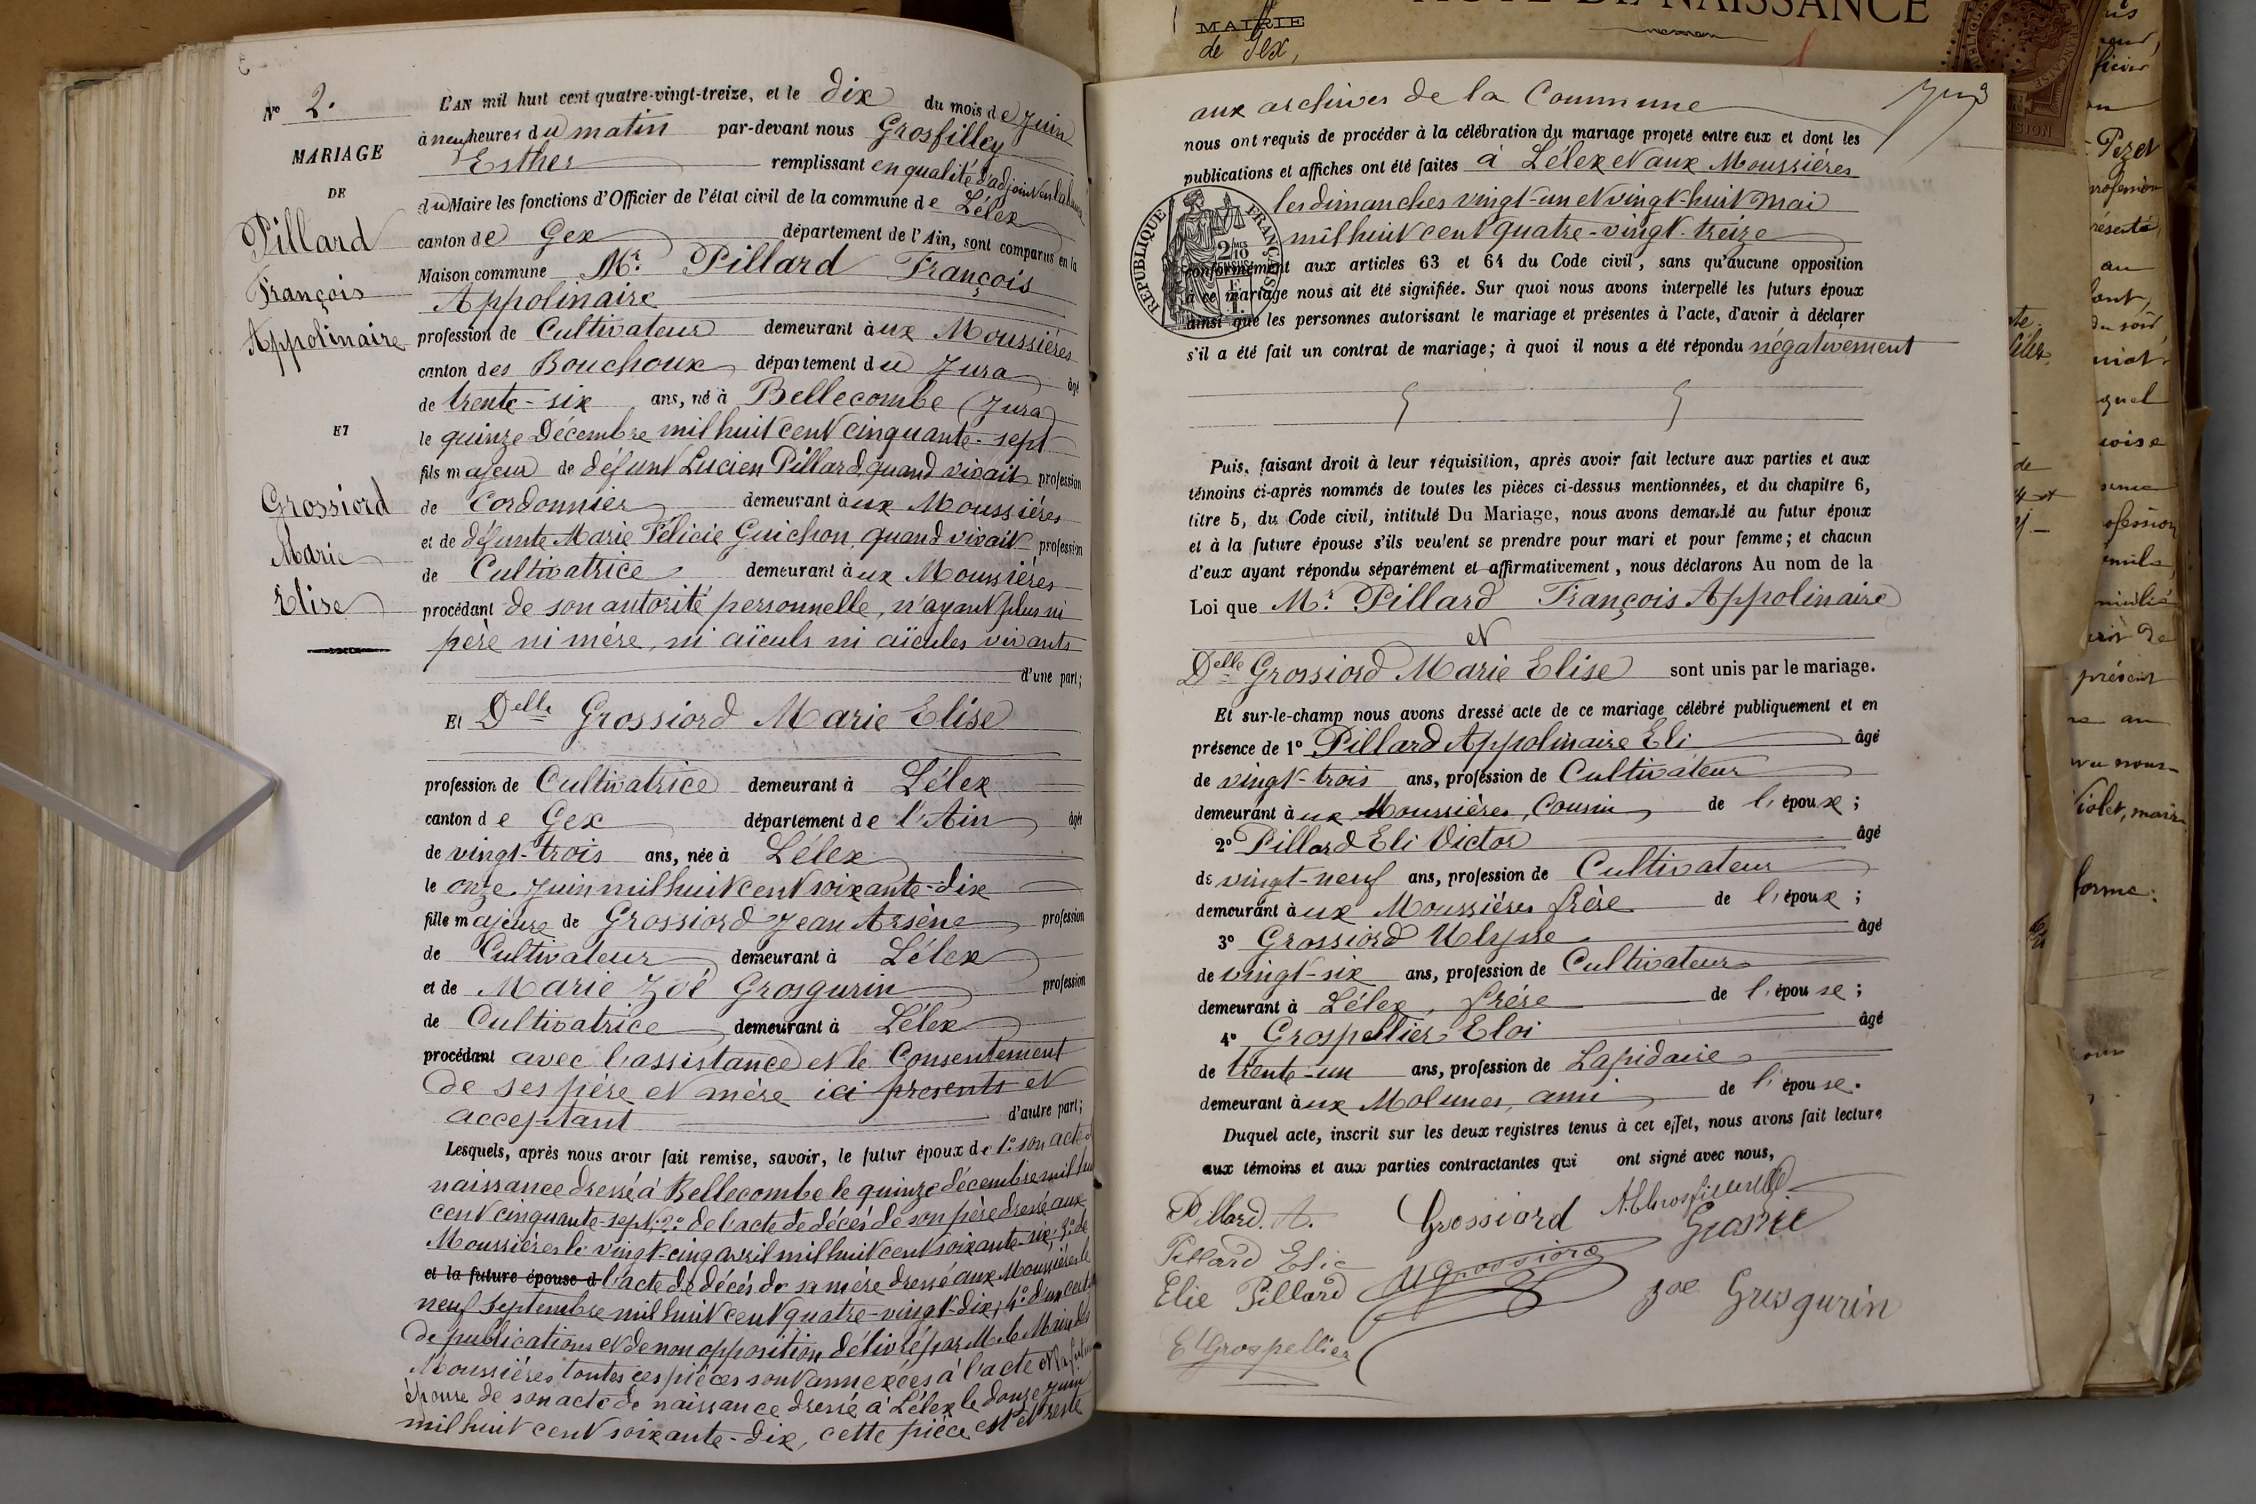 N° 2.
MARIAGE
DE
Pillard
François
Appolinaire
ET
Grossiord
Marie
Elise
L'AN mil huit cent quatre-vingt-treize, et le dix du mois de Juin
à neuf heures du matin par-devant nous Grosfilley
Esther remplissant en qualité d'adjoint en l'absence
du Maire les fonctions d'Officier de l'état civil de la commune de Lélex
canton de Gex département de l'Ain, sont comparus en la
Maison commune Mr. Pillard François
Appolinaire
profession de Cultivateur demeurant à ux Moussières
canton des Bouchoux département du Jura âgé
de trente-six ans, né à Bellecombe (Jura)
le quinze Décembre mil huit cent cinquante-sept
fils majeur de défunt Lucien Pillard, quand vivait profession
de Cordonnier demeurant à ux Moussières
et de défunte Marie Félicie Guichon, quand vivait profession
de Cultivatrice demeurant à ux Moussières
procédant de son autorité personnelle, n'ayant plus ni
père ni mère, ni aïeuls ni aïeules vivants
d'une part;
Et Delle Grossiord Marie Elise
profession de Cultivatrice demeurant à Lélex
canton de Gex département de l'Ain âgée
de vingt-trois ans, née à Lélex
le onze Juin mil huit cent soixante-dix
fille majeure de Grossiord Jean Arsène profession
de Cultivateur demeurant à Lélex
et de Marie Zoé Grosgurin profession
de Cultivatrice demeurant à Lélex
procédant avec l'assistance et le Consentement
de ses père et mère ici présents et
acceptant d'autre part;
Lesquels, après nous avoir fait remise, savoir, le futur époux de 1° son acte de
naissance dressé à Bellecombe le quinze décembre mil huit
cent cinquante-sept, 2° de l'acte de décès de son père dressé aux
Moussières le vingt-cinq avril mil huit cent soixante-six, 3° de
et la future épouse d l'acte de décès de sa mère dressé aux Moussières le
neuf Septembre mil huit cent quatre-vingt-dix, 4° d'un certi
de publications et de non opposition délivré par M. le Maire des
Moussières, toutes ces pièces sont annexées à l'acte et la future
épouse de son acte de naissance dressé à Lélex le douze Juin
mil huit cent soixante-dix, cette pièce est et reste
MAIRIE
de Gex,
ACTE DE NAISSANCE
aux archives de la Commune
nous ont requis de procéder à la célébration du mariage projeté entre eux et dont les
publications et affiches ont été faites à Lélex et aux Moussières
les dimanches vingt-un et vingt-huit mai
mil huit cent quatre-vingt-treize
RÉPUBLIQUE FRANÇAISE
2/10
conformément aux articles 63 et 64 du Code civil, sans qu'aucune opposition
à ce mariage nous ait été signifiée. Sur quoi nous avons interpellé les futurs époux
ainsi que les personnes autorisant le mariage et présentes à l'acte, d'avoir à déclarer
s'il a été fait un contrat de mariage; à quoi il nous a été répondu négativement
Puis, faisant droit à leur réquisition, après avoir fait lecture aux parties et aux
témoins ci-après nommés de toutes les pièces ci-dessus mentionnées, et du chapitre 6,
titre 5, du Code civil, intitulé Du Mariage, nous avons demandé au futur époux
et à la future épouse s'ils veulent se prendre pour mari et pour femme; et chacun
d'eux ayant répondu séparément et affirmativement, nous déclarons Au nom de la
Loi que Mr. Pillard François Appolinaire
et
Delle Grossiord Marie Elise sont unis par le mariage.
Et sur-le-champ nous avons dressé acte de ce mariage célébré publiquement et en
présence de 1° Pillard Appolinaire Eli âgé
de vingt-trois ans, profession de Cultivateur
demeurant à ux Moussières, Cousin de l'époux;
2° Pillard Eli Victor âgé
de vingt-neuf ans, profession de Cultivateur
demeurant à ux Moussières frère de l'époux;
3° Grossiord Ulysse âgé
de vingt-six ans, profession de Cultivateur
demeurant à Lélex, frère de l'épouse;
4° Grospellier Eloi âgé
de trente-un ans, profession de Lapidaire
demeurant à ux Molunes, ami de l'épouse.
Duquel acte, inscrit sur les deux registres tenus à cet effet, nous avons fait lecture
aux témoins et aux parties contractantes qui ont signé avec nous,
Pillard. A. Grossiord
Pillard Elie U Grossiord
Elie Pillard Zoé Grosgurin
El Grospellier
Pezet
profession
au
quel
présent
Violet, maire
forme: